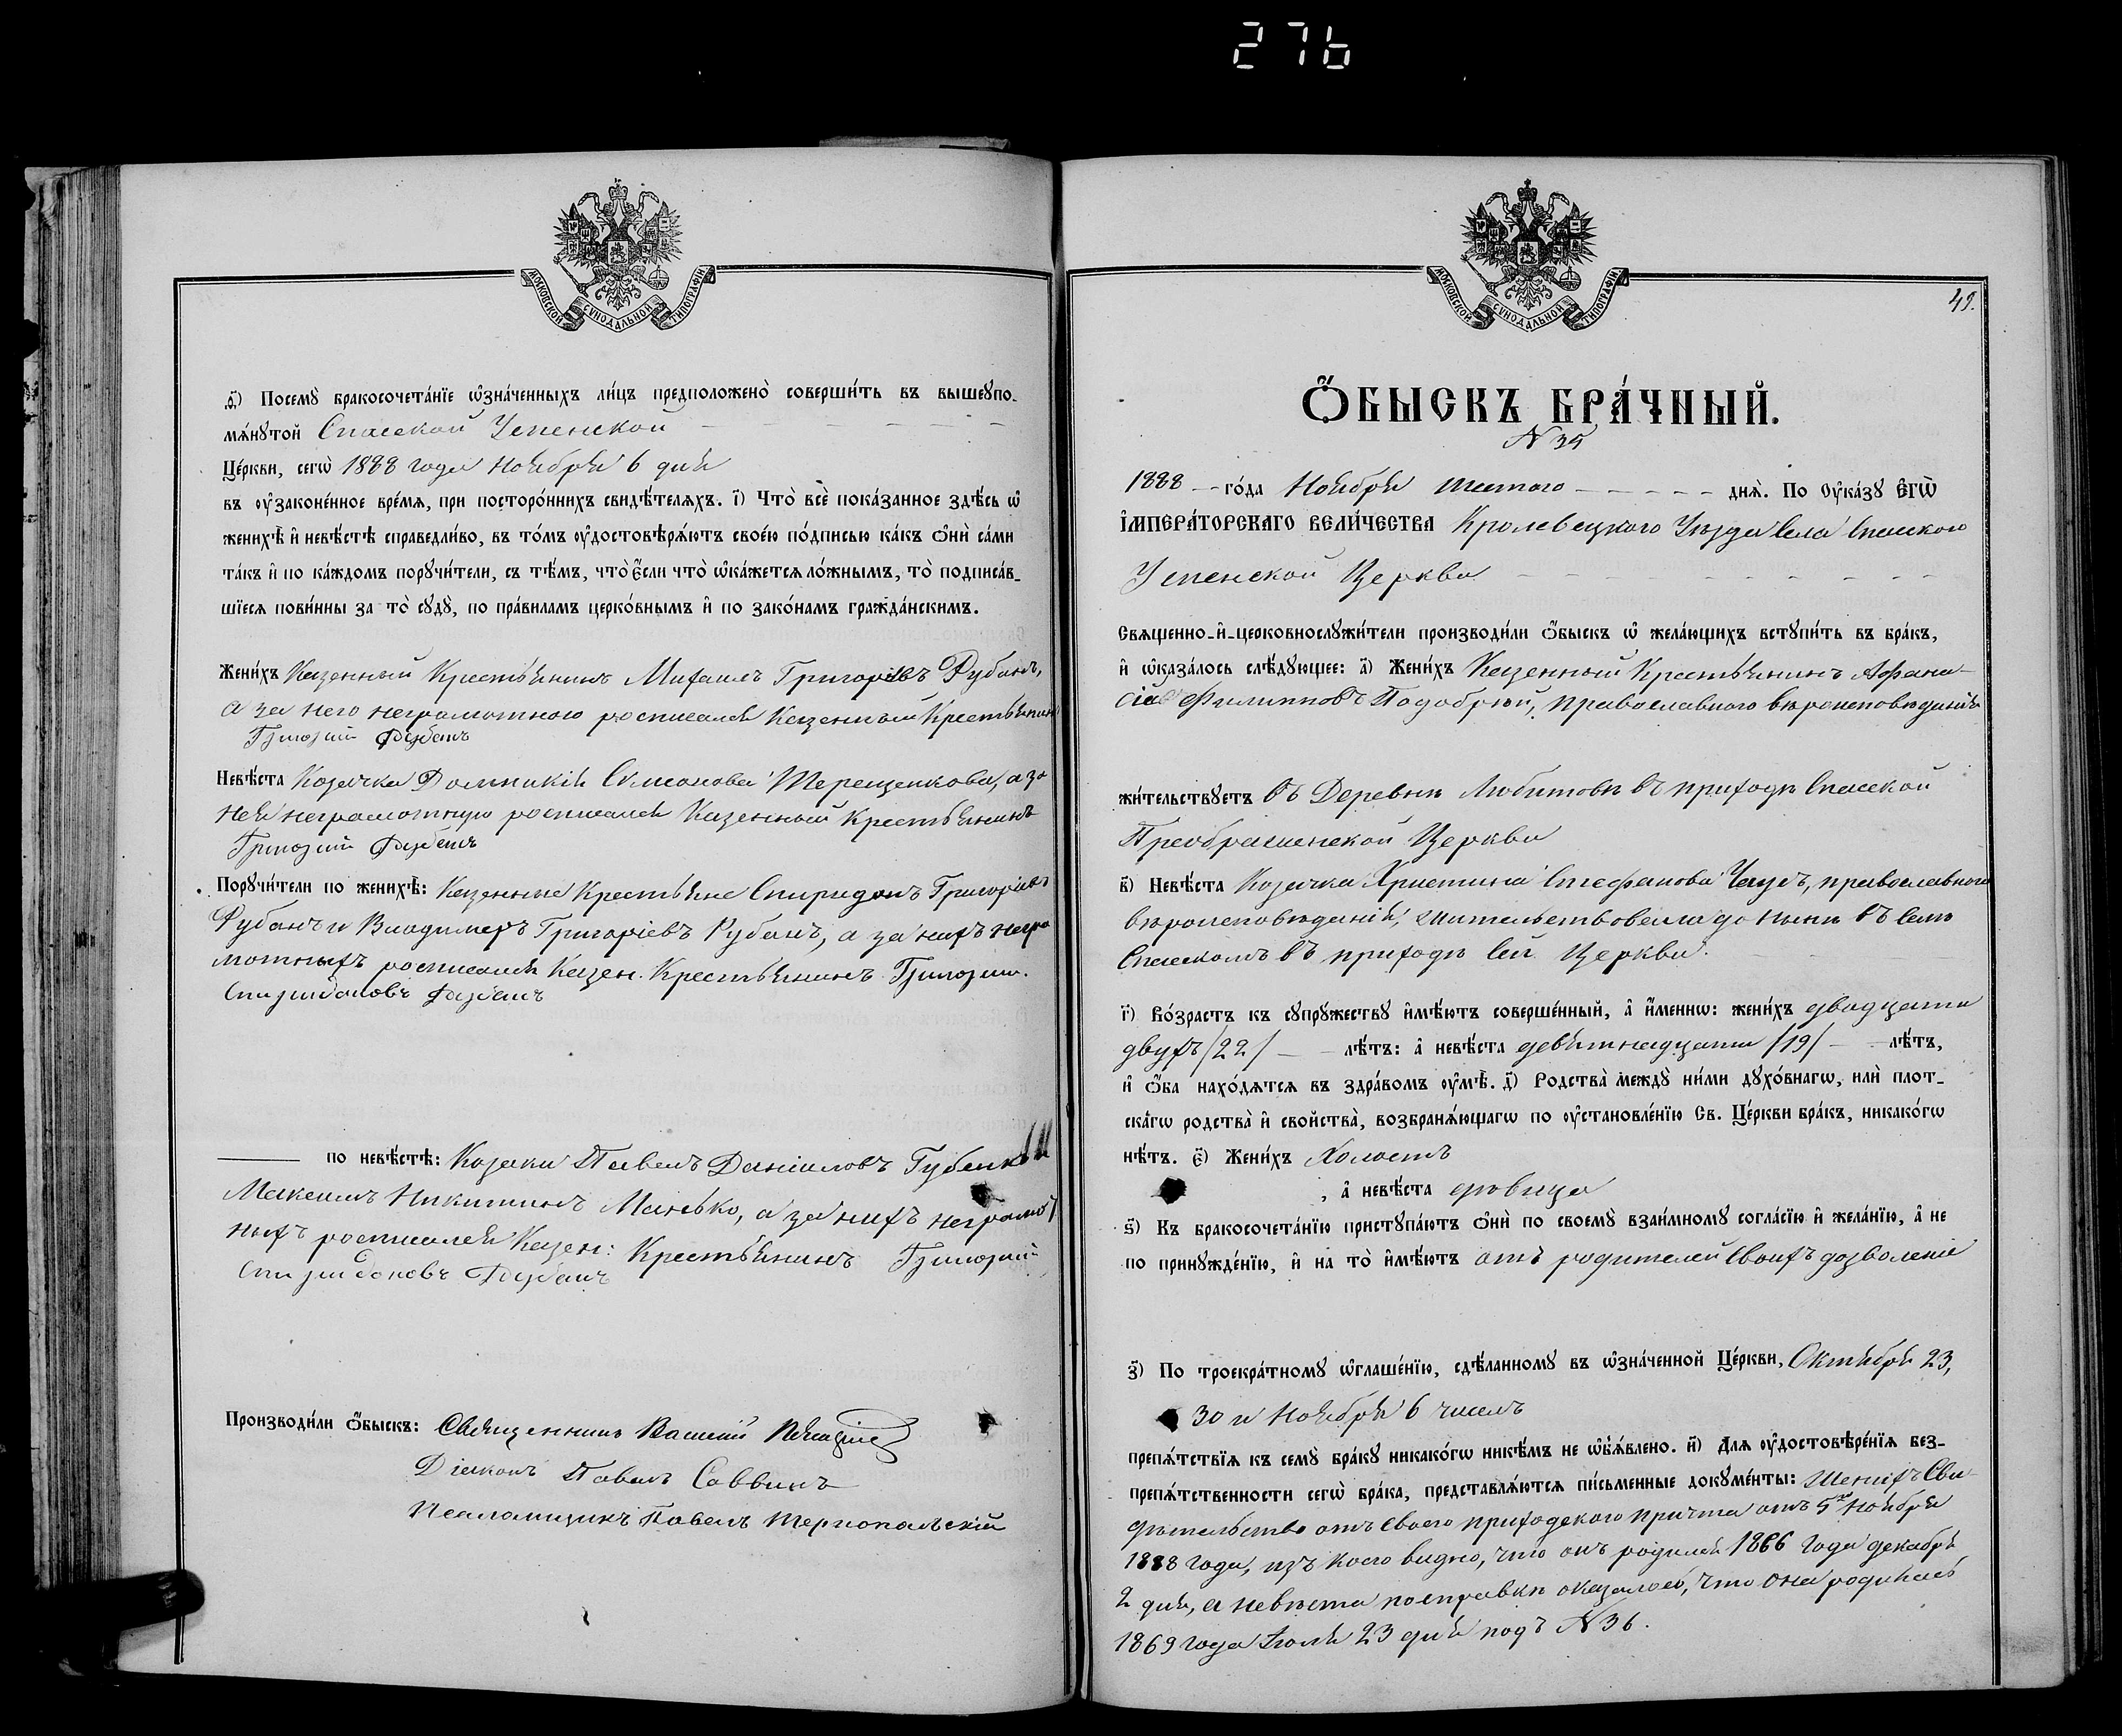 276
МОСКОВСКОЙ СѴНОДАЛЬНОЙ ТИПОГРАФІИ
ѳ҃) Посемꙋ̀ бракосочета́нїе ѡ҆зна́ченныхъ ли́цъ предположено̀ соверши́ть въ вышеꙋпо-
мѧ́нꙋтой Спасской Успенской
Це́ркви, сегѡ̀ 1888 года Ноября 6 дня
въ ᲂу҆законе́нное вре́мѧ, при посторо́ннихъ свидѣ́телѧхъ. і҃) Что̀ всѐ пока́занное здѣ́сь ѡ҆
женихѣ̀ и҆ невѣ́стѣ справедли́во, въ то́мъ ᲂу҆достовѣрѧ́ютъ свое́ю по́дписью ка́къ ѻ҆нѝ са́ми
та́къ и҆ по ка́ждомъ порꙋчи́тели, съ тѣ́мъ, что̀ є҆́сли что̀ ѡ҆ка́жетсѧ ло́жнымъ, то̀ подписа́в-
шїесѧ пови́нны за то̀ сꙋдꙋ̀, по пра́виламъ церко́внымъ и҆ по зако́намъ гражда́нскимъ.
Жени́хъ Казенный Крестьянинъ Михаилъ Григорієвъ Рубанъ,
а за него неграмотного росписался Казенный Крестьянин
Григорий Рубанъ
Невѣ́ста Козачка Домникія Симонова Терещенкова, а за
нея неграмотную росписался Казенный Крестьянинъ
Григорий Рубанъ
Порꙋчи́тели по женихѣ̀: Казенные Крестьяне Спиридонъ Григоріевъ
Рубанъ и Владимеръ Григоріевъ Рубанъ, а за нихъ негра
мотныхъ росписался Казен. Крестьянинъ Григорий
Спиридоновъ Рубанъ
по невѣ́стѣ: Козаки Павелъ Даніиловъ Губенко и
Максимъ Никитинъ Манько, а за нихъ неграмот
ныхъ росписался Казен: Крестьянинъ Григорий
Спиридоновъ Рубанъ
Производи́ли ѻ҆́быскъ: Священникъ Василий
Діаконъ Павелъ Саввинъ
Псаломщикъ Павелъ Тернопольскій
МОСКОВСКОЙ СѴНОДАЛЬНОЙ ТИПОГРАФІИ
49.
Ѻ҆́БЫСКЪ БРА́ЧНЫЙ.
N 35
1888 го́да Ноября шестого днѧ̀. По ᲂу҆ка́зꙋ Е҆ГѠ̀
І҆МПЕРА́ТОРСКАГО ВЕЛИ́ЧЕСТВА Кролевецкого Уѣзда Села Спаского
Успенской Церкви
Свѧщенно-и҆-церковнослꙋжи́тели производи́ли ѻ҆́быскъ ѡ҆ жела́ющихъ встꙋпи́ть въ бра́къ,
и҆ ѡ҆каза́лось слѣ́дꙋющее: а҃) Жени́хъ Казенный Крестьянинъ Афана-
сій Филипповъ Подобрій, православного вѣроисповѣданія
жи́тельствꙋетъ въ Деревнѣ Любитовѣ въ приходѣ Спасской
Преображенской Церкви
в҃) Невѣ́ста Козачка Христина Стефанова Чаусъ, православного
вѣроисповѣданія, жительствовала до нынѣ въ селѣ
Спасскомъ въ приходѣ Сей Церкви.
г҃) Во́зрастъ къ сꙋпрꙋ́жествꙋ и҆мѣ́ютъ соверше́нный, а҆ и҆́меннѡ: жени́хъ двадцати
двухъ /22/ лѣ́тъ: а҆ невѣ́ста девятнадцати /19/ лѣ́тъ,
и҆ ѻ҆́ба нахо́дѧтсѧ въ здра́вомъ ᲂу҆мѣ̀. д҃) Родства̀ междꙋ̀ ни́ми дꙋхо́внагѡ, илѝ плот-
ска́гѡ родства̀ и҆ сво́йства̀, возбранѧ́ющагѡ по ᲂу҆становле́нїю Св. Це́ркви бра́къ, никако́гѡ
нѣ́тъ. є҃) Жени́хъ Холостъ
, а҆ невѣ́ста дѣвица
ѕ҃) Къ бракосочета́нїю пристꙋпа́ютъ ѻ҆нѝ по своемꙋ̀ взаи́мномꙋ согла́сїю и҆ жела́нїю, а҆ не
по принꙋжде́нїю, и҆ на то̀ и҆мѣ́ютъ отъ родителей своихъ дозволеніе
з҃) По троекра́тномꙋ ѡ҆глаше́нїю, сдѣ́ланномꙋ въ ѡ҆зна́ченной Це́ркви, Октября 23,
30 и Ноября 6 чиселъ
препѧ́тствїѧ къ семꙋ̀ бра́кꙋ никако́гѡ никѣ́мъ не ѡ҆бъѧ́влено. и҃) Длѧ ᲂу҆достовѣре́нїѧ без-
препѧ́тственности сегѡ̀ бра́ка, представлѧ́ютсѧ пи́сьменные докꙋме́нты: Женихъ Сви-
дѣтельство отъ своего приходского причта отъ 5го Ноября
1888 года, изъ коего видно, что онъ родился 1866 года декабря
2 дня, а невѣста по справкѣ оказалось, что она родилась
1869 года Іюля 23 дня подъ N 36.